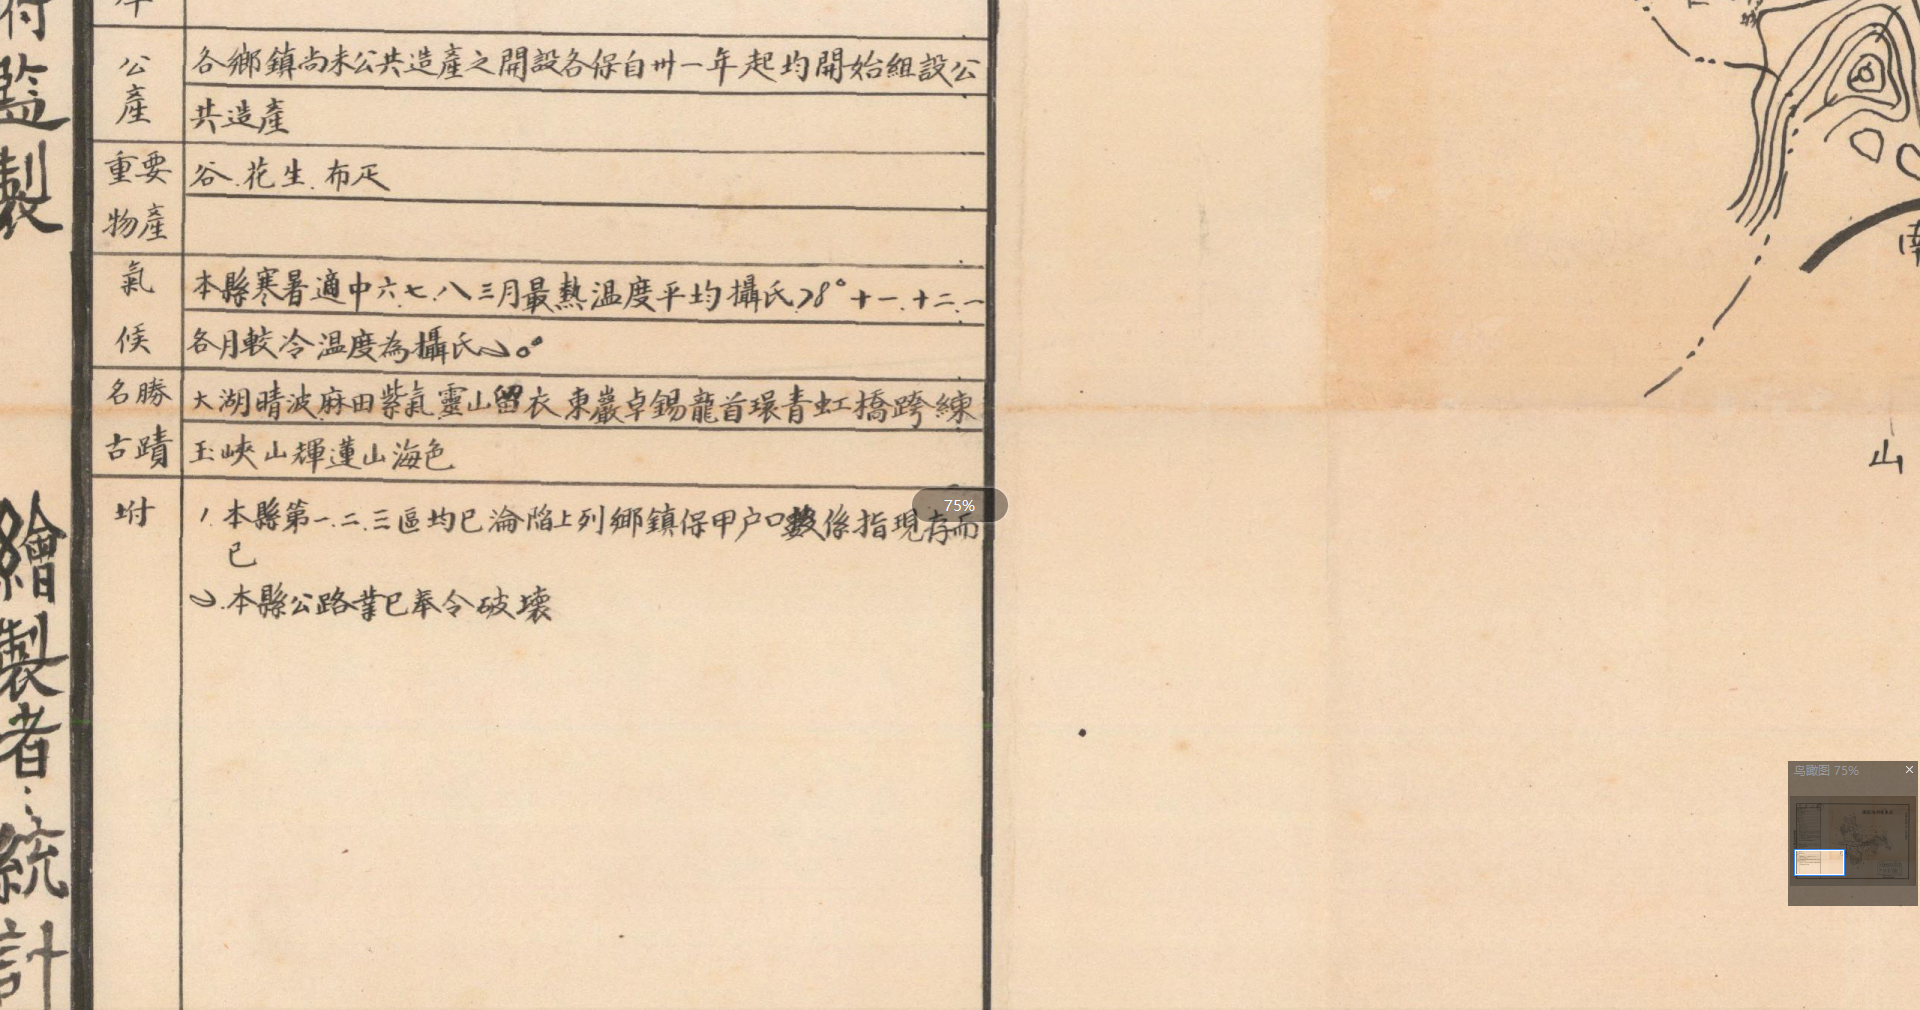 公產
各鄉鎮尚未公共造產之開設各保自卅一年起均開始組設公
共造產
重要
物產
谷.花生.布疋
氣
候
本縣寒暑適中六.七.八三月最熱温度平均攝氏28°十一.十二.一
各月較冷温度為攝氏20°
名勝
古蹟
大湖晴波麻田紫氣靈山留衣東巖卓錫龍首環青虹橋跨練
玉峽山輝蓮山海色
坿
1.本縣第一.二.三區均已淪陷上列鄉鎮保甲户口數係指現存而
已
2.本縣公路業已奉令破壞
府監製
繪製者:統計
南
山
75%
鸟瞰图 75%